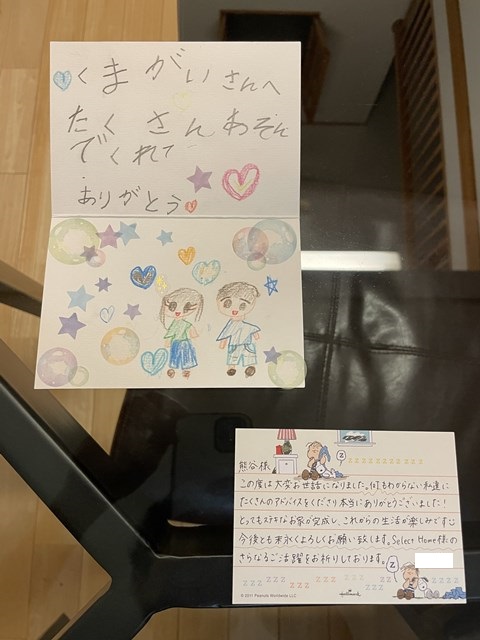 くまがいさんへ
たくさんあそん
でくれて
ありがとう
Z
ZZZZZZZZZZZ
熊谷様
この度は大変お世話になりました。何もわからない私達に
たくさんのアドバイスをくださり本当にありがとうございました!
とってもステキなお家が完成し、これからの生活が楽しみです
今後とも末永くよろしくお願い致します。Select Home様の
さらなるご活躍をお祈りしております。
Z
© 2011 Peanuts Worldwide LLC
Hallmark